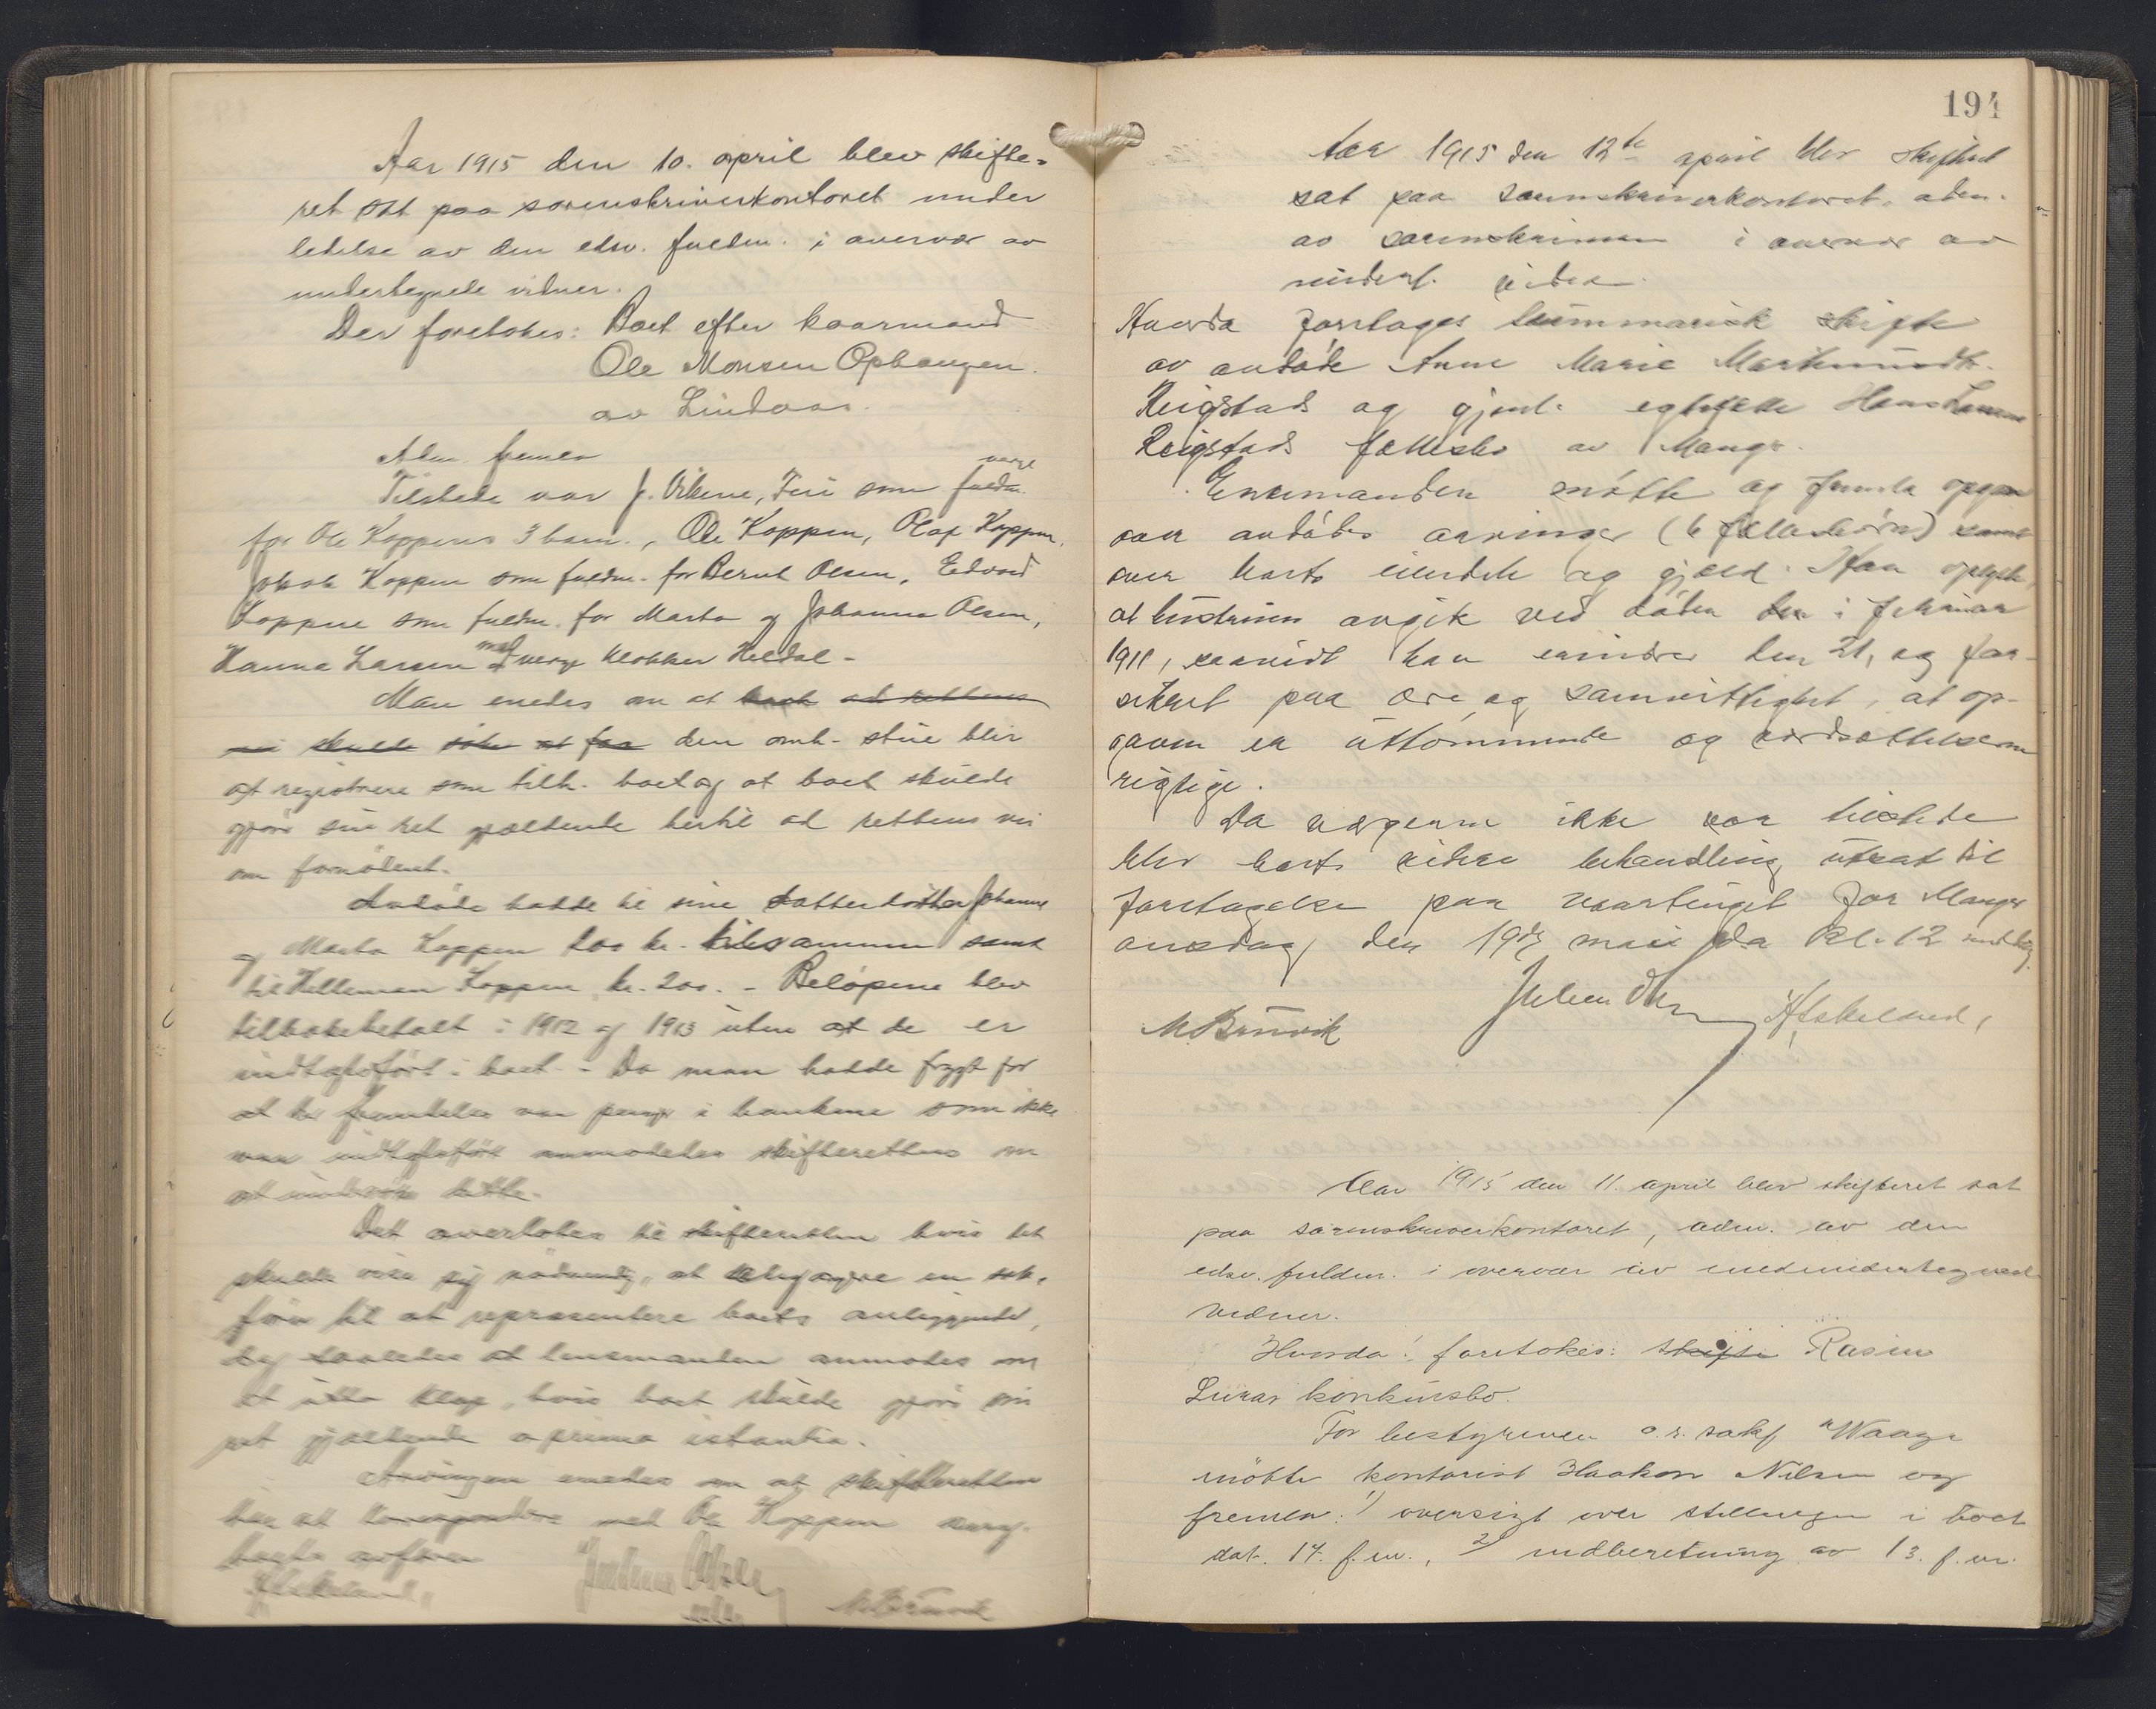 Aar 1915 den 10. april blev skifte=
ret sat paa sorenskriverkontoret under
ledelse av den edsv. fuldm. i overvær av
undertegnede vidner.
Der foretokes: Boet efter kaarmand
Ole Monsen Ophaugen.
av Lindaas.
Adm. freml.
verge
Tilstede var J. Vikene, Feie som fuldm.
for Ole Koppens 3 barn., Ole Koppen, Olaf Koppen,
Jakob Koppen som fuldm. for Bernt Olsen, Edvard
Koppen som fuldm. for Marta og Johanna Olsen,
Hanna Larsen med verge klokker Heldal -
Man enedes om at boet ad rettens
vei skulde söke at faa den omh. stue blir
at registrere som tilh. boet og at boet skulde
gjöre sin ret gjældende hertil ad rettens vei
om fornödent.
Avdöde hadde til sine datterdötre Johanne
og Marta Koppen 200 kr. tilsammen samt
til Koppen kr. 200. - Belöpene blev
tilbakebetalt i 1912 og 1913 uten at de er
indtægtsfört i boet. - Da man hadde frygt for
at der fremdeles var penge i bankene som ikke
var indtægtsfört anmodedes skifteretten om
at undersöke dette.
Det overlotes til skifteretten hvis det
skulde vise sig nödvendig, at engagere en sak-
förer til at repræsentere boets anliggender,
og saaledes at lensmanden anmodes om
at utta klage, hvis boet skulde gjöre sin
ret gjældende a prima istantia.
Arvingene enedes om at skifteretten
har at korrespondere med Ole Koppen
boets
M Brunvik
194
Aar 1915 den 12te april blev skifteret
sat paa sorenskriverkontoret, adm.
av sorenskriveren i overvær av
undert. vidner.
Hvorda foretages summarisk skifte
av avdöde Anne Marie Martinusdtr.
Reigstads og gjenl. egtefælle Hans
Reigstads fællesbo av Manger.
Enkemanden mötte og freml. opgave
over avdödes arvinger (6 fællesbörn) samt
over boets eiendele og gjæld. Han oplyste,
at hustruen avgik ved döden den i februar
1911, saavidt han erindrer den 21, og for-
sikret paa ære og samvittighet, at op-
gaven er uttömmende og værdsættelserne
rigtige.
Da vergerne ikke var tilstede
blev boets videre behandling utsat til
foretagelse paa vaartinget for Manger
onsdag den 19de mai da kl. 12 middag.
M Brunvik
Aar 1915 den 11. april blev skifteret sat
paa sorenskriverkontoret, adm. av den
edsv. fuldm. i overvær av medundertegnede
vidner.
Hvorda: foretokes: skifte Rasmus
Luras konkursbo.
For bestyreren o.r. sakf Waage
mötte kontorist Haakon Nilsen og
fremla: 1) oversigt over stillingen i boet
dat. 14. f.m., 2) indberetning av 13. f.m.